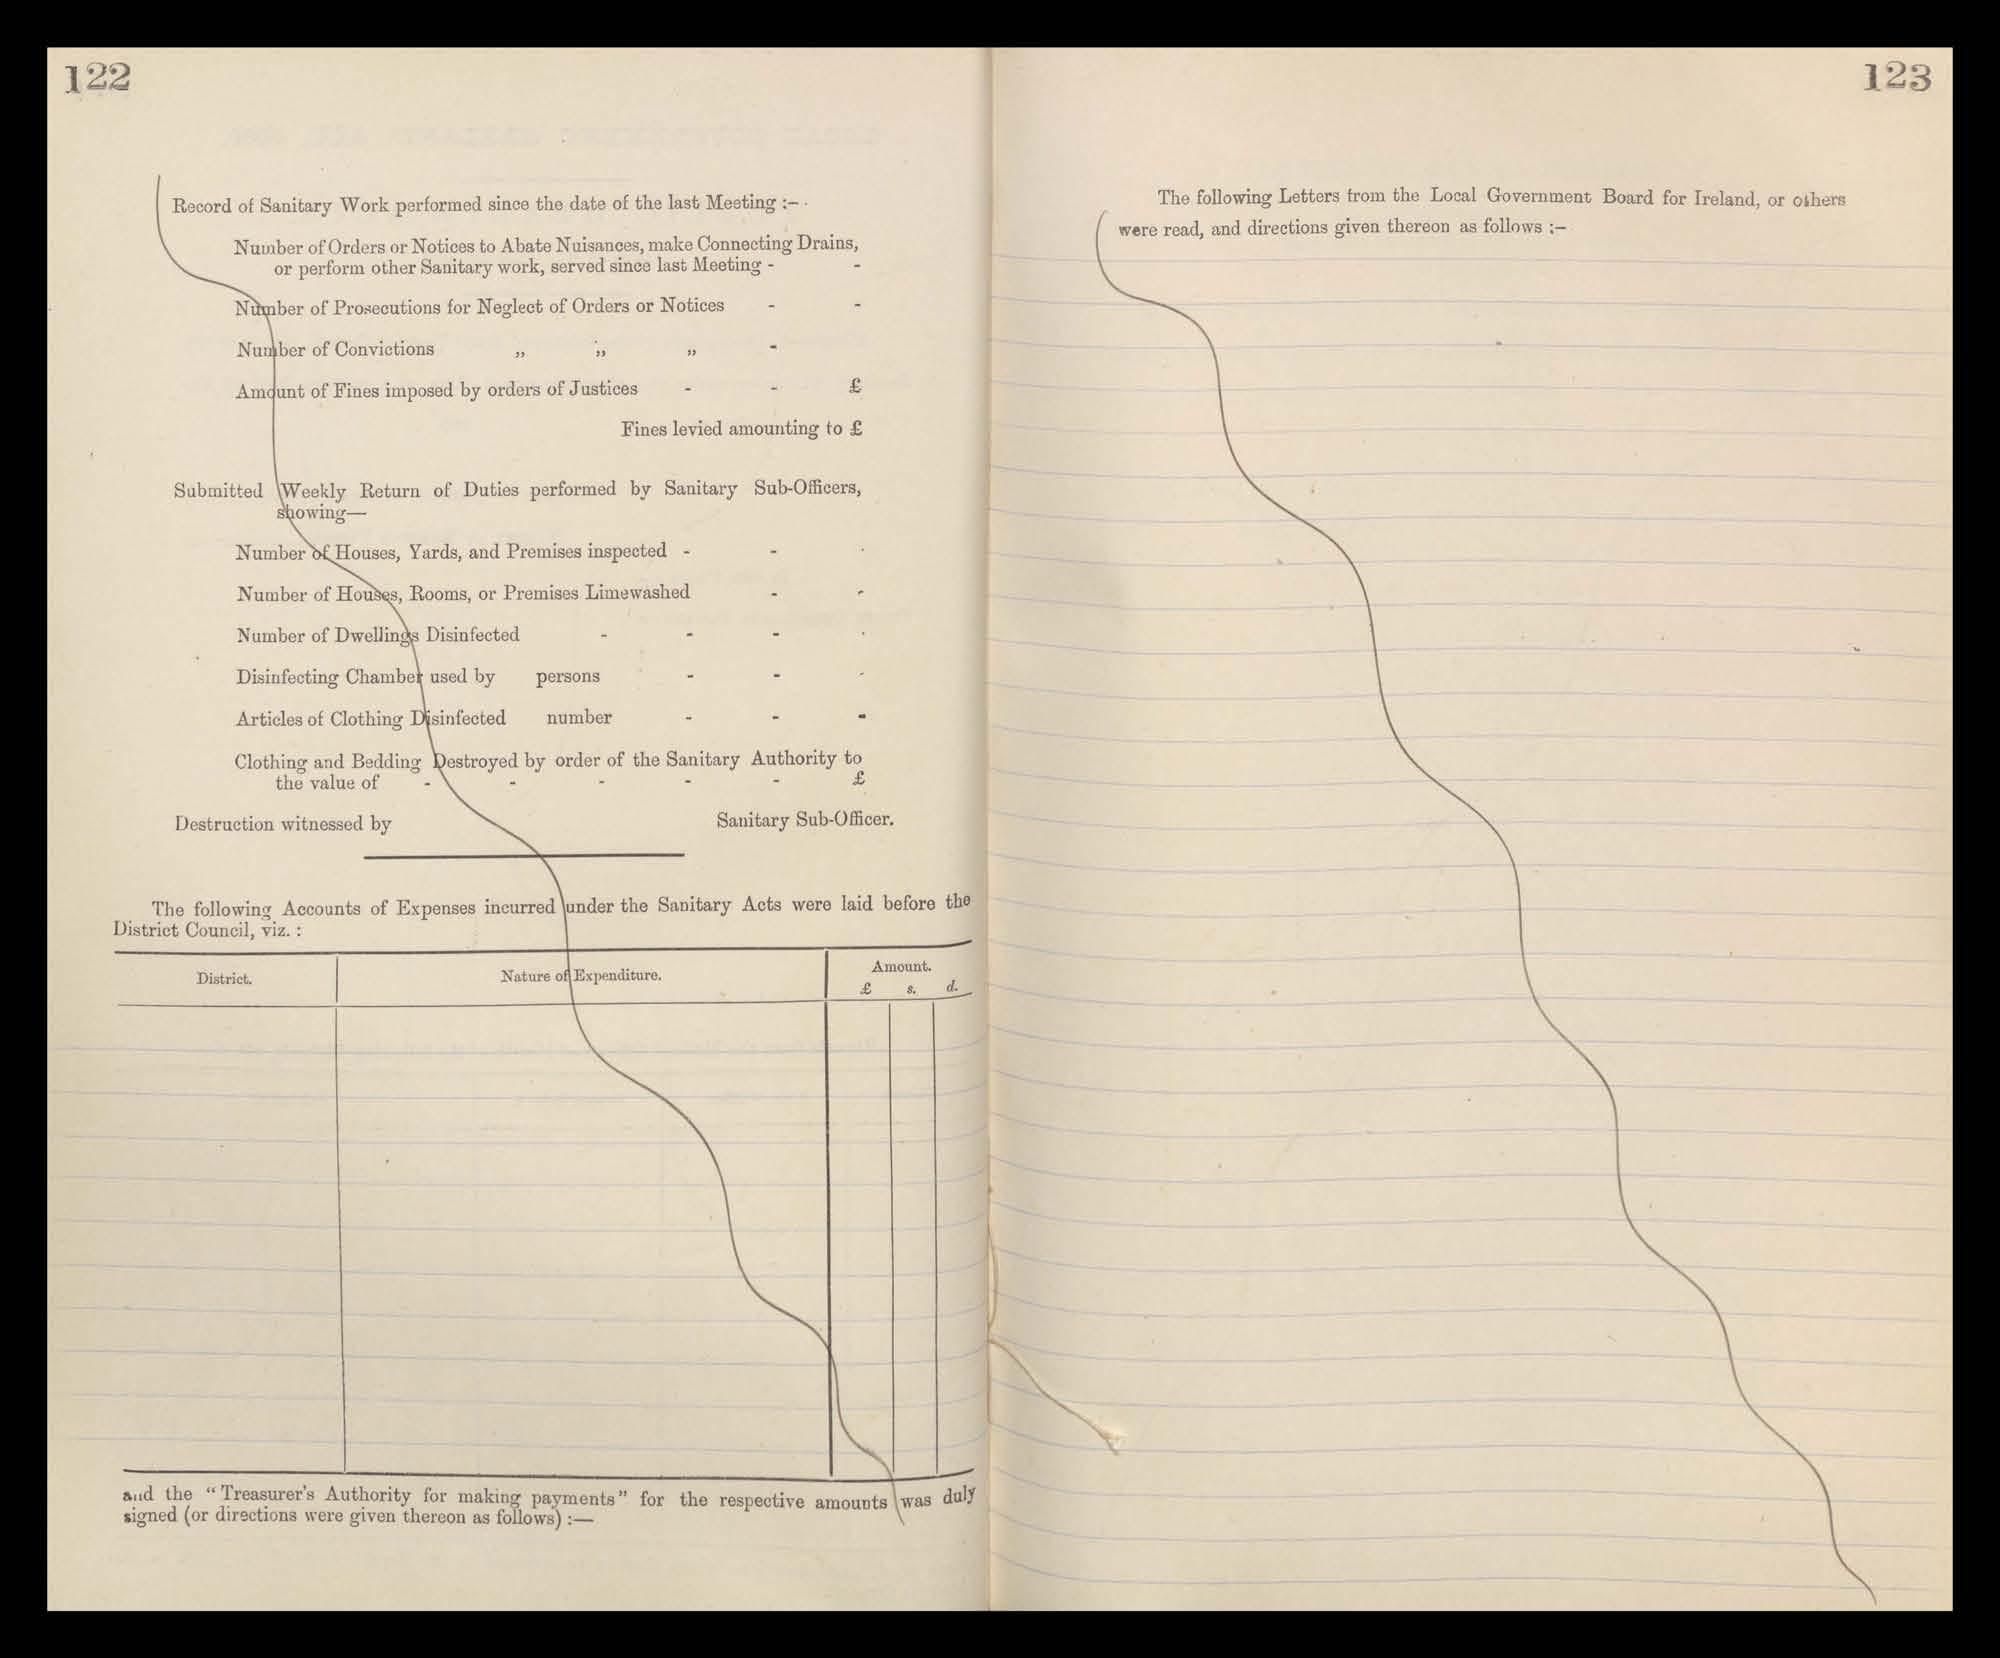 122
Record of Sanitary Work performed since the date of the last Meeting :-
Number of Orders or Notices to Abate Nuisances, make Connecting Drains,
or perform other Sanitary work, served since last Meeting - -
Number of Prosecutions for Neglect of Orders or Notices - -
Number of Convictions „ „ „ -
Amount of Fines imposed by orders of Justices - - £
Fines levied amounting to £
Submitted Weekly Return of Duties performed by Sanitary Sub-Officers,
showing—
Number of Houses, Yards, and Premises inspected - - -
Number of Houses, Rooms, or Premises Limewashed - -
Number of Dwellings Disinfected - - - -
Disinfecting Chamber used by persons - - -
Articles of Clothing Disinfected number - - -
Clothing and Bedding Destroyed by order of the Sanitary Authority to
the value of - - - - - £
Destruction witnessed by Sanitary Sub-Officer.
The following Accounts of Expenses incurred under the Sanitary Acts were laid before the
District Council, viz. :
District. Nature of Expenditure. Amount.
£ s. d.
and the "Treasurer's Authority for making payments" for the respective amounts was duly
signed (or directions were given thereon as follows) :—
123
The following Letters from the Local Government Board for Ireland, or others
were read, and directions given thereon as follows :-